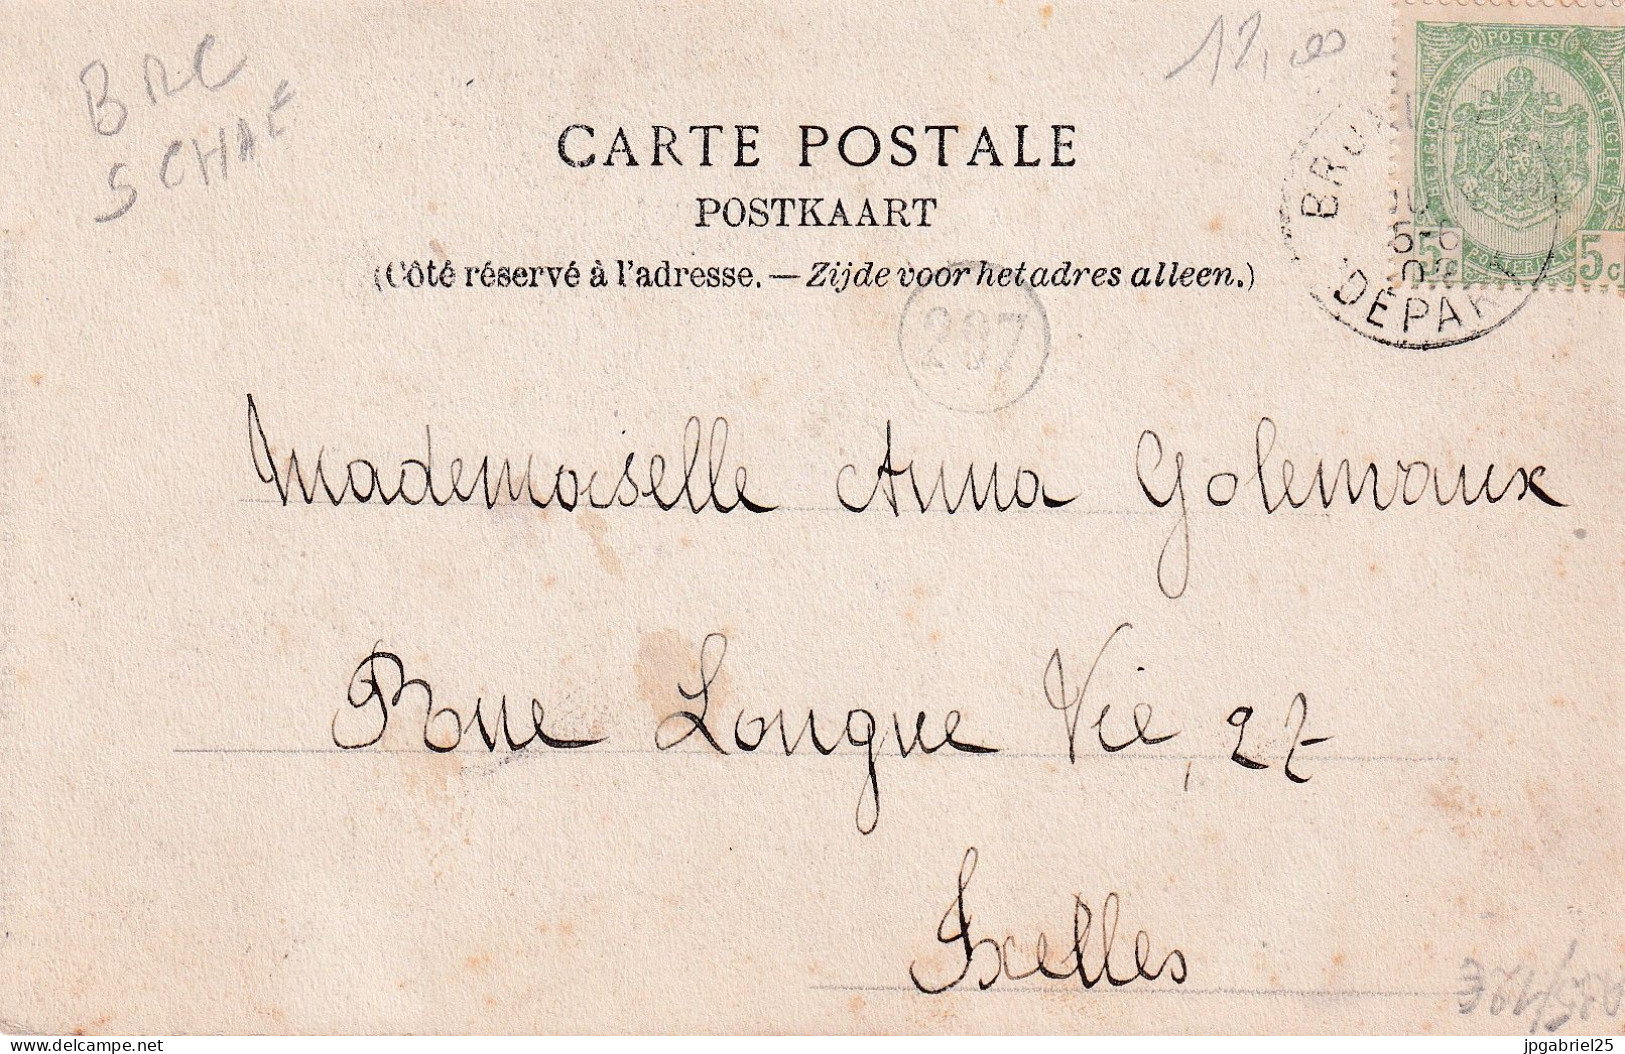 BRC
SCHAE
12,00
POSTES
BELGIQUE
BELGIË
5
5c
BRUX
5-6
DÉPAR
CARTE POSTALE
POSTKAART
(Côté réservé à l'adresse. — Zijde voor het adres alleen.)
297
Mademoiselle Anna Golenvaux
Rue Longue Vie, 27
Ixelles
delcampe.net
jpgabriel25